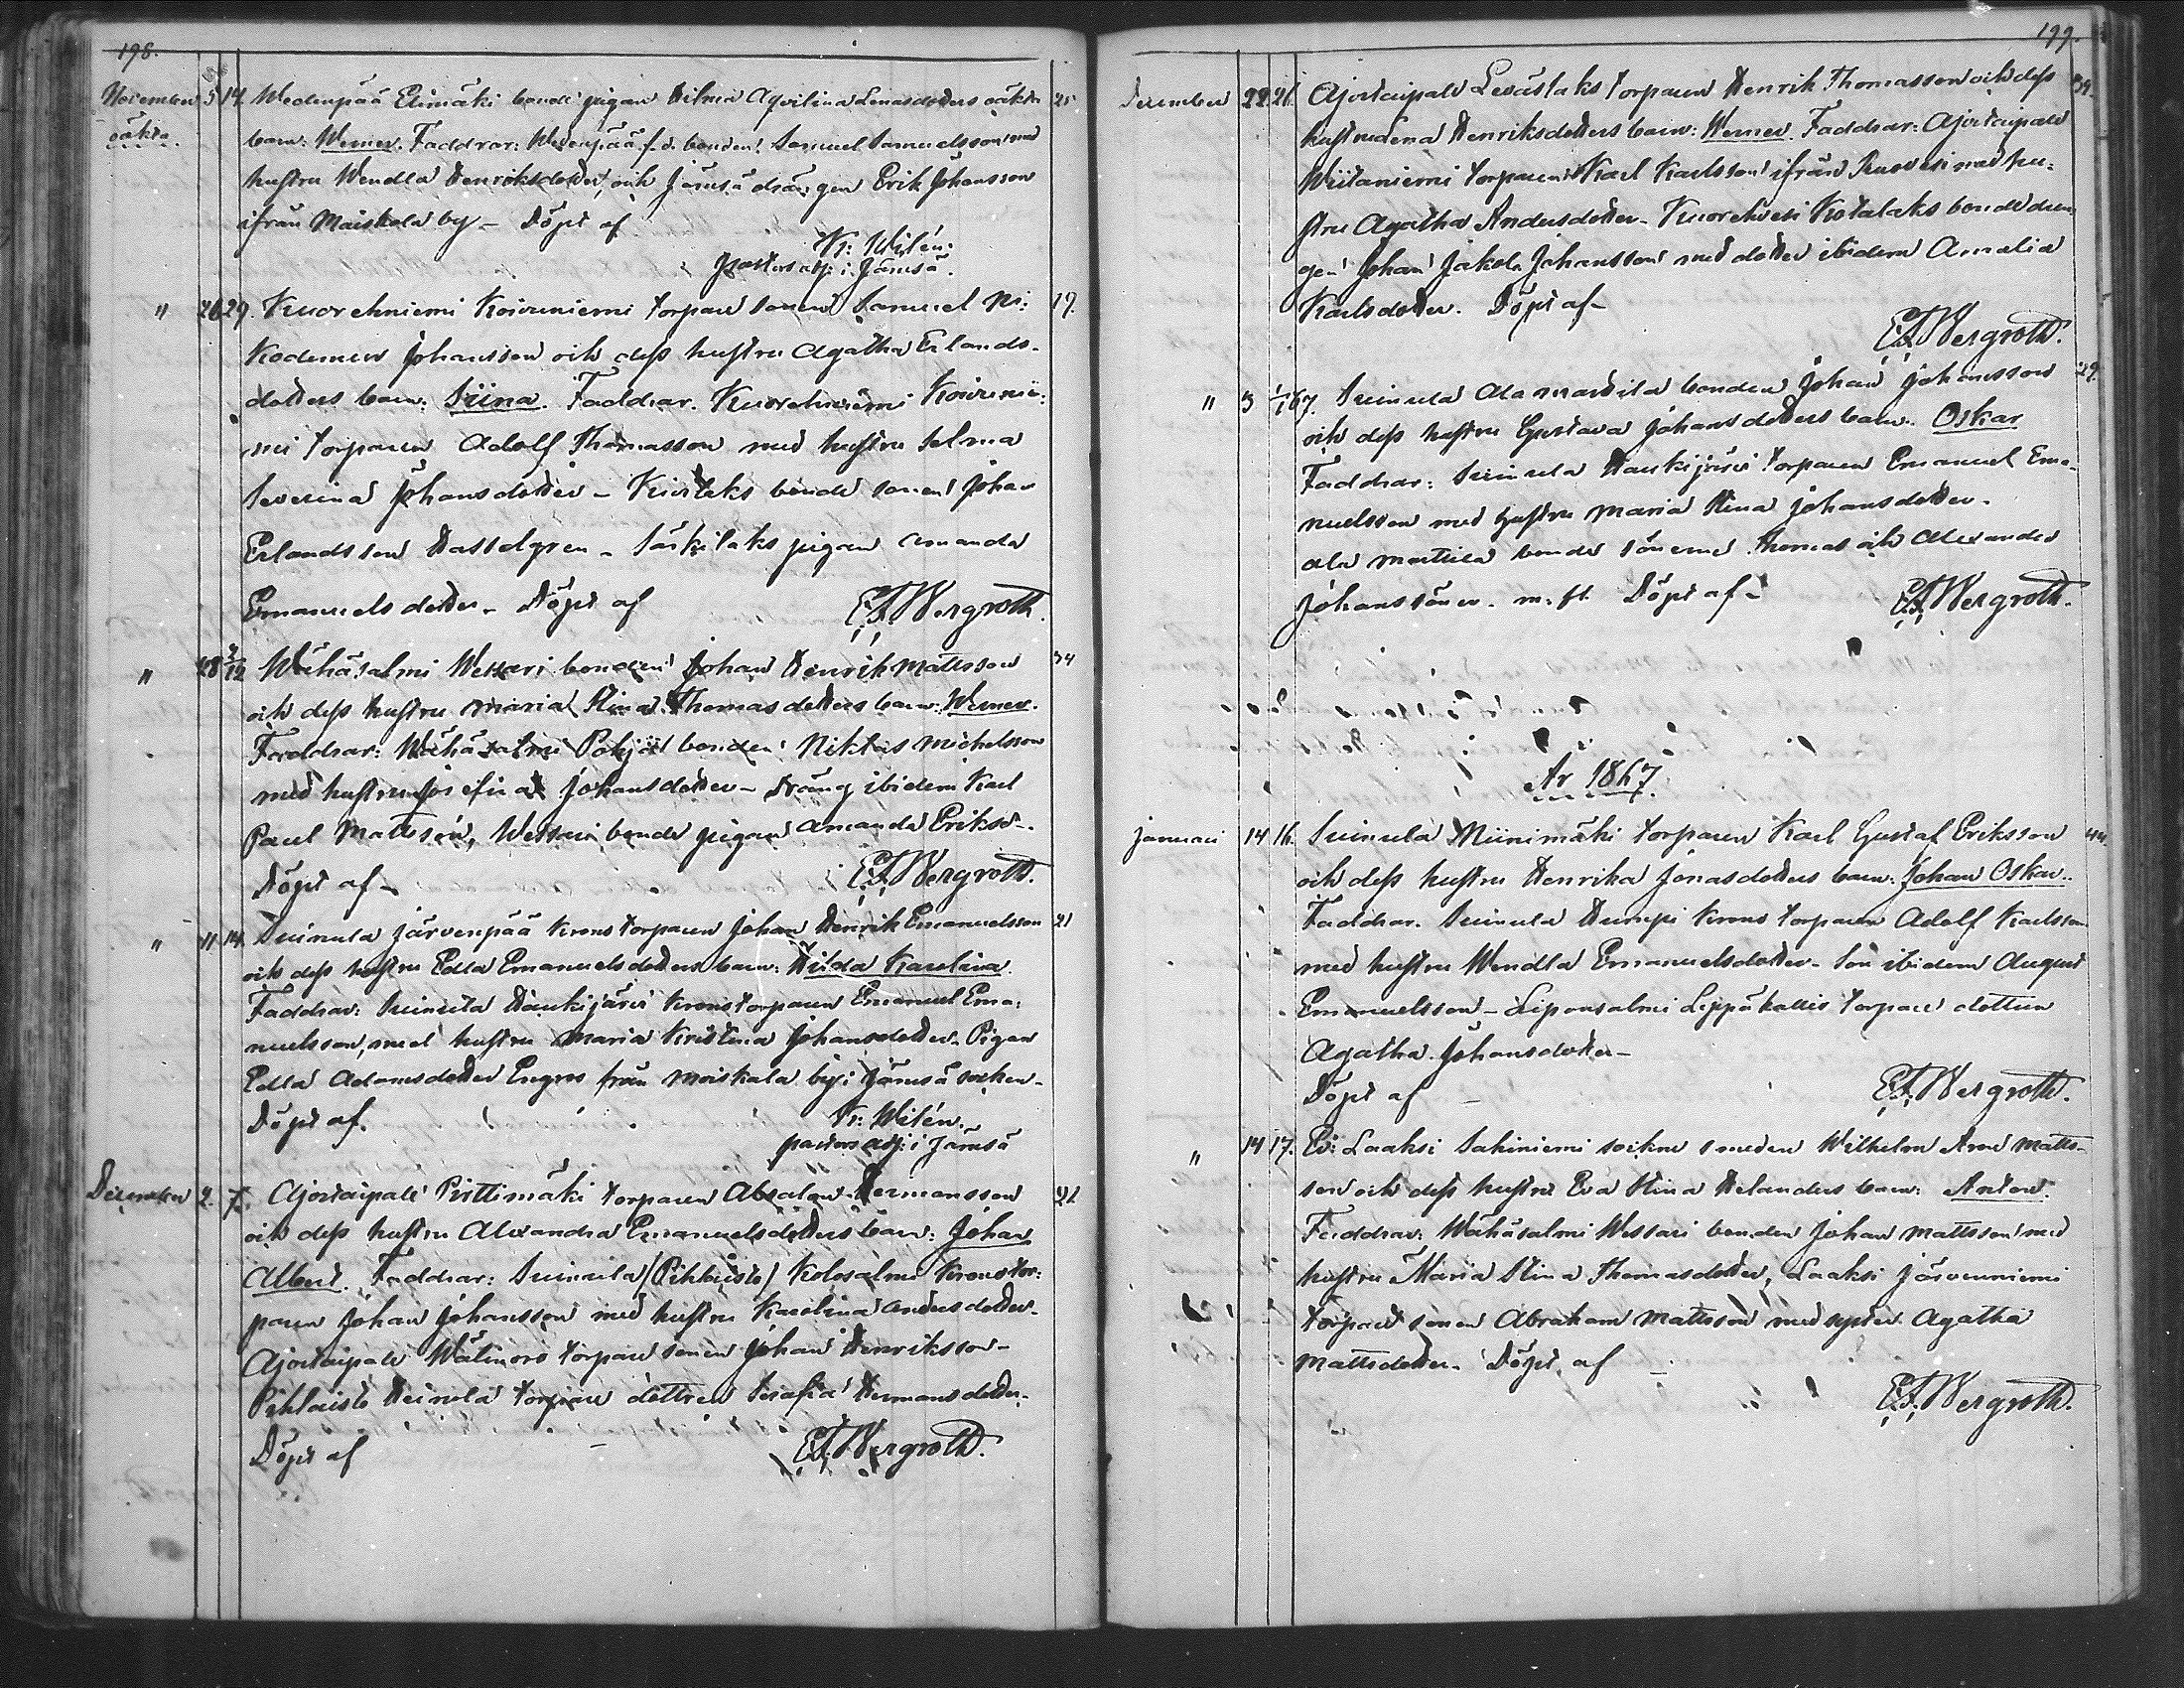 198.
November 5 14. Wedenpää Elimäki bonde pigan Hilma Aqvilina Lenasdotters oäkta 25
oäkta. barn: Werner. Faddrar: Wedenpää f.d. bonden Samuel Samuelsson med
hustru Wendla Henriksdotter, och Jämsä drängen Erik Johansson
ifrån Maiskola by – Döpt af
Kr: Wilén.
pastors adj: i Jämsä.
" 26 29. Kuorehniemi Koivuniemi torpare sonen Samuel Ni: 19.
kodemus Johansson och dess hustru Agatha Erlands-
dotters barn: Siina. Faddrar. Kuorehniemi Koivunie:
mi torparen Adolf Thomasson med hustru Selma
Severina Johansdotter – Kivilaks bonde sonen Johan
Erlandsson Hasselgren – Särkilaks pigan Amanda
Emanuelsdotter – Döpt af E.F. Bergroth.
" 28 2/12 Wähäsalmi Wessari bonden Johan Henrik Mattsson 34
och dess hustru Maria Stina Thomasdotters barn: Werner.
Faddrar: Wähäsalmi Pohja bonden Niklas Michelsson
med hustru Josefina Johansdotter – dräng ibidem Karl
Paul Mattsson, Wessari bonde pigan Amanda Eriksd–.
Döpt af – E.F. Bergroth.
" 11 14. Suinula Järvenpää krono torparen Johan Henrik Emanuelsson 21
och dess hustru Edla Emanuelsdotters barn: Hilda Karolina.
Faddrar: Suinula Haukijärvi kronotorparen Emanuel Ema:
nuelsson, med hustru Maria Kristina Johansdotter. Pigan
Edla Adamsdotter Engros från Moiskala by i Jämsä socken –
Döpt af. Kr: Wilén.
pastors adj: i Jämsä
December 2. 7. Ajostaipale Pirttimäki torparen Absalon Hermansson 22
och dess hustru Alexandra Emanuelsdotters barn: Johan
Albert. Faddrar: Suinula (Pihlaisto) Kolosalmi kronotor:
paren Johan Johansson med hustru Karolina Andersdotter –
Ajostaipale torpare sonen Johan Henriksson –
Pihlaisto Heinula torpare dottren Serafia Hermansdotter.
Döpt af – E.F. Bergroth.
199.
December 22 26. Ajostaipale Leväslaks torparen Henrik Thomasson och dess 39.
hustru Lena Henriksdotters barn: Werner. Faddrar: Ajostaipale
Wiitaniemi torparen Karl Karlsson ifrån Ruovesi med hu:
stru Agatha Andersdotter – Kuorehvesi Kotalaks bonde drän
gen Johan Jakob Johansson med dotter ibidem Amalia
Karlsdotter. Döpt af –
E.F. Bergroth.
" 3 1/1 67. Suinula Alamattila bonden Johan Johansson 29.
och dess hustru Gustava Johansdotters barn: Oskar
Faddrar: Suinula Haukijärvi torparen Emanuel Ema-
nuelsson med hustru Maria Stina Johansdotter –
Ala Mattila bonde sönerne Thomas och Alexander
Johanssöner. m. fl. Döpt af – E.F. Bergroth.
År 1867.
Januari 14 16. Suinula Miinimäki torparen Karl Gustaf Eriksson 44.
och dess hustru Henrika Jonasdotters barn: Johan Oskar.
Faddrar. Suinula Humpi krono torparen Adolf Karlsson
med hustru Wendla Emanuelsdotter – Son ibidem August
Emanuelsson – Leponsalmi Leppäkallis torpare dottren
Agatha Johansdotter –
Döpt af – E.F. Bergroth.
" 14 17. Laaksi Sahiniemi sockne smeden Wilhelm Aron Matts-
son och dess hustru Eva Stina Helanders barn: Anton.
Faddrar: Wähäsalmi Wessari bonden Johan Mattsson med
hustru Maria Stina Thomasdotter, Laaksi Järvenniemi
torpare sonen Abraham Mattsson med syster Agatha
Mattsdotter – Döpt af –
E.F. Bergroth.